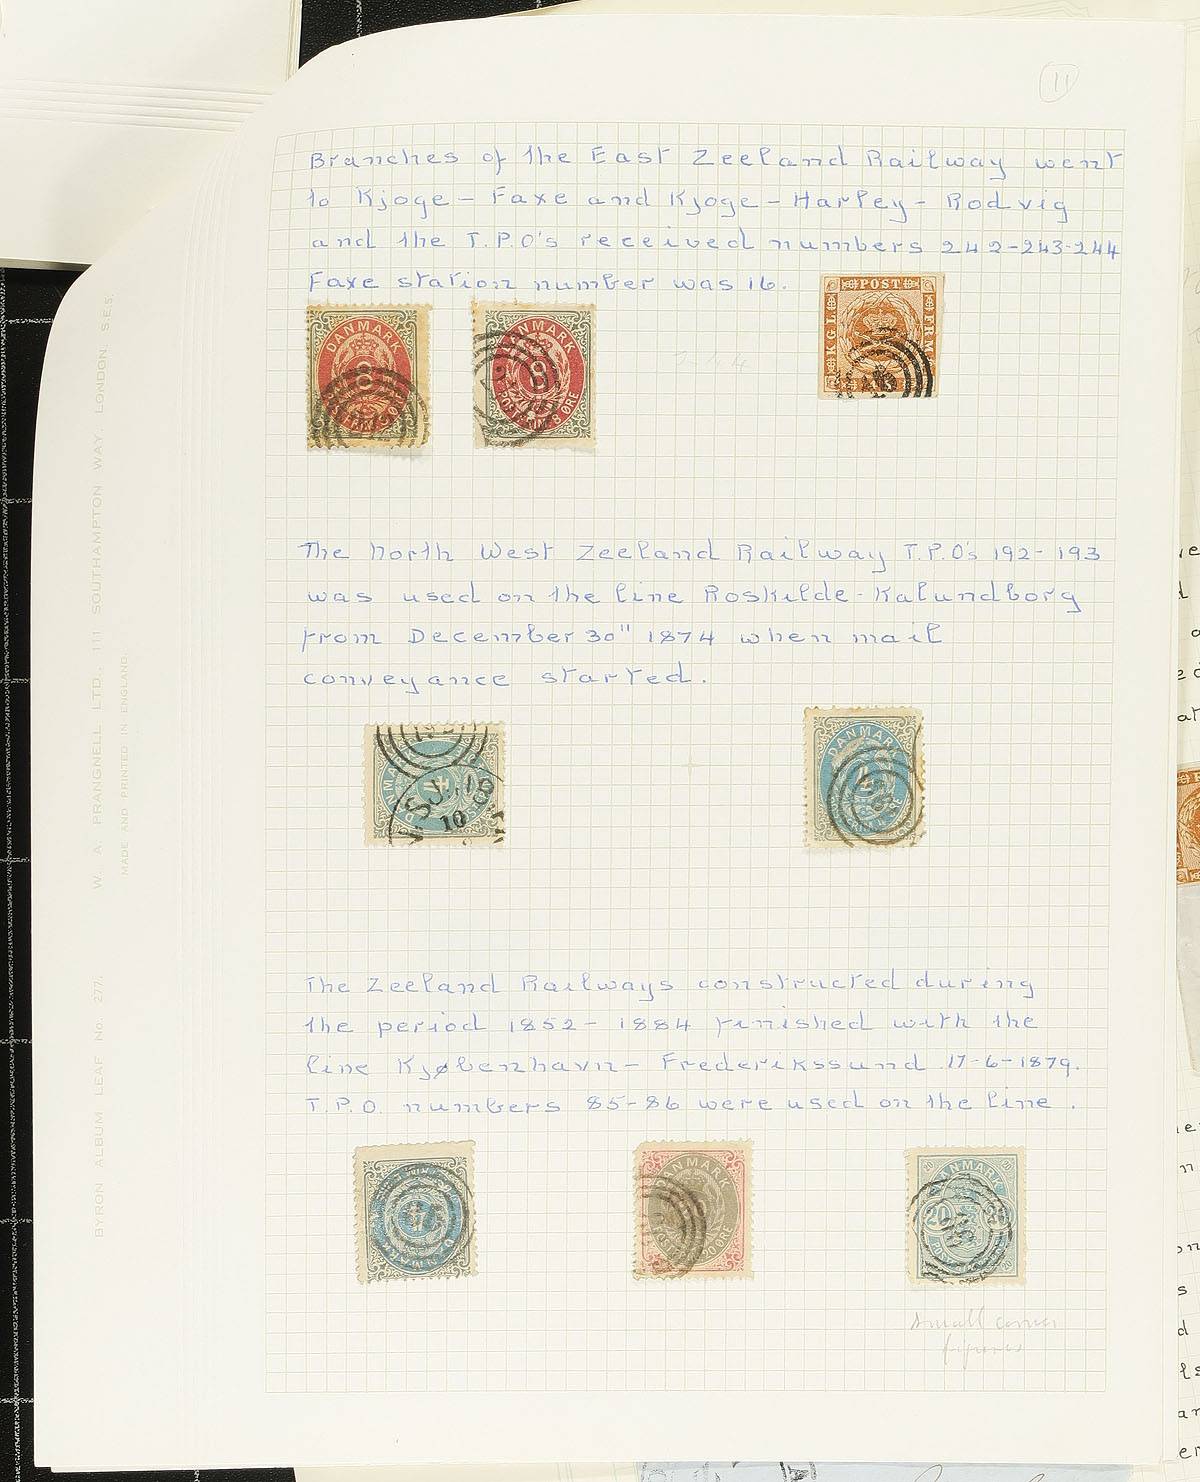 11
Branches of the East Zeeland Railway went
to Kjoge - Faxe and Kjoge - Harley - Rodvig
and the T.P.O's received numbers 242-243-244
Faxe station number was 16.
DANMARK
8
DANMARK
8
POSTFRIM. 8 ØRE
KGL POST FRM
The North West Zeeland Railway T.P.O's 192-193
was used on the line Roskilde-Kalundborg
from December 30" 1874 when mail
conveyance started.
DANMARK
4
10
DANMARK
4
The Zeeland Railways constructed during
the period 1852-1884 finished with the
line Kjøbenhavn - Frederikssund 17-6-1879.
T.P.O. numbers 85-86 were used on the line.
DANMARK
DANMARK
DANMARK
20
small corner
figures
W. A. PRANGNELL LTD., 111 SOUTHAMPTON WAY, LONDON, S.E.5.
MADE AND PRINTED IN ENGLAND.
BYRON ALBUM LEAF No. 277.